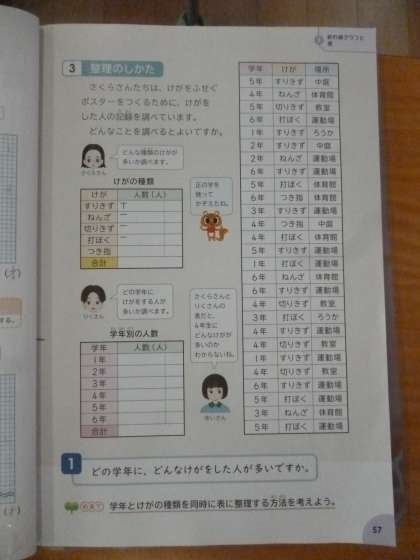 折れ線グラフと
表
3 整理のしかた
さくらさんたちは、けがをふせぐ
ポスターをつくるために、けがを
した人の記録を調べています。
どんなことを調べるとよいですか。
どんな種類のけがが
多いか調べます。
さくらさん
けがの種類
けが 人数（人）
すりきず 丅
ねんざ 一
切りきず 一
打ぼく 一
つき指
合計
正の字を
使って
かぞえたね。
どの学年に
けがをする人が
多いか調べます。
りくさん
学年別の人数
学年 人数（人）
1年
2年
3年
4年
5年
6年
合計
さくらさんと
りくさんの
表だと、
4年生に
どんなけがが
多いのか
わからないね。
ゆいさん
学年 けが 場所
5年 すりきず 中庭
4年 ねんざ 体育館
5年 切りきず 教室
6年 打ぼく 運動場
1年 すりきず ろうか
2年 すりきず 中庭
2年 ねんざ 運動場
6年 すりきず 運動場
5年 打ぼく 体育館
6年 つき指 体育館
3年 すりきず 運動場
4年 つき指 中庭
4年 打ぼく 体育館
5年 すりきず 運動場
1年 打ぼく 運動場
6年 ねんざ 体育館
6年 すりきず 運動場
4年 切りきず 教室
3年 打ぼく ろうか
4年 すりきず 運動場
4年 切りきず 教室
1年 すりきず 運動場
4年 切りきず 教室
6年 すりきず 運動場
5年 打ぼく 運動場
3年 ねんざ 体育館
5年 打ぼく 運動場
1 どの学年に、どんなけがをした人が多いですか。
めあて 学年とけがの種類を同時に表に整理する方法を考えよう。
57